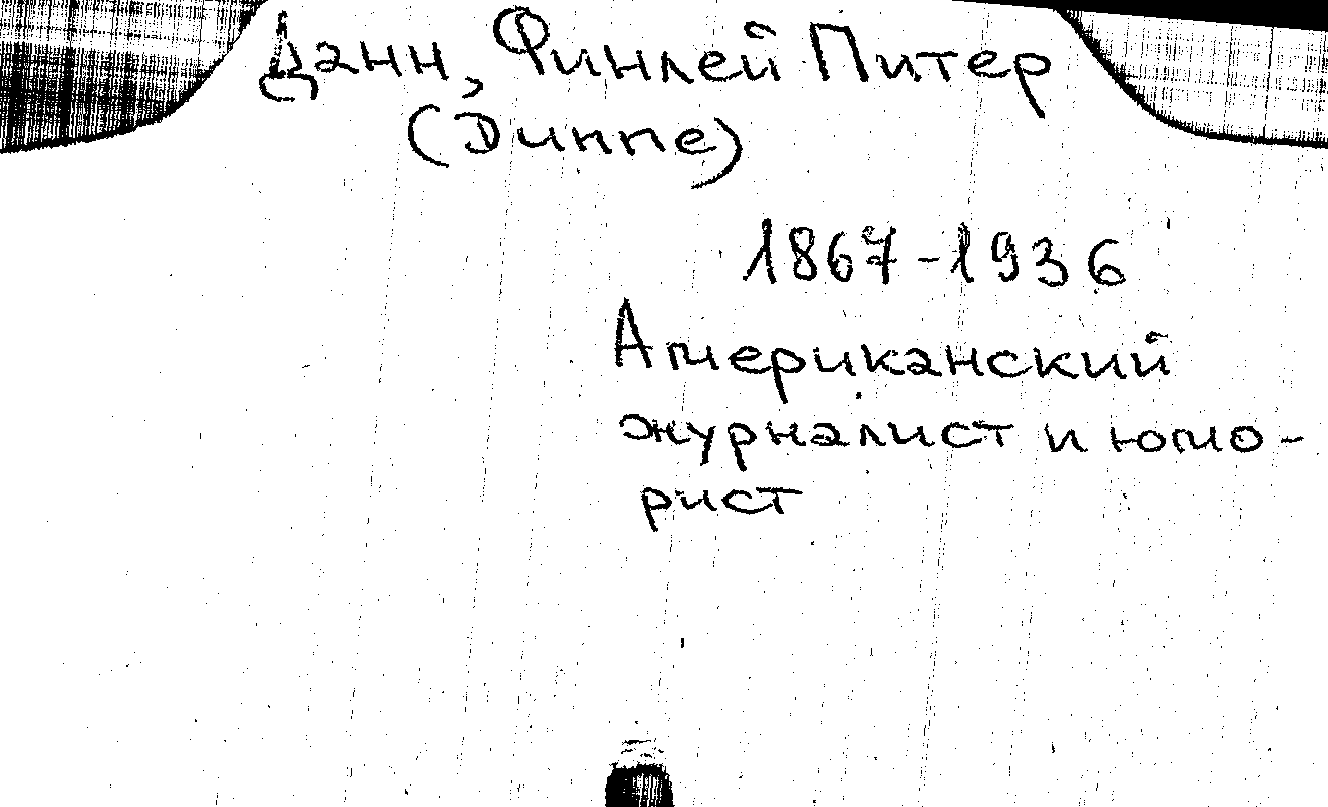 Данн, Финлей Питер
(Dunne)
1867-1936
Американский
журналист и юмо-
рист